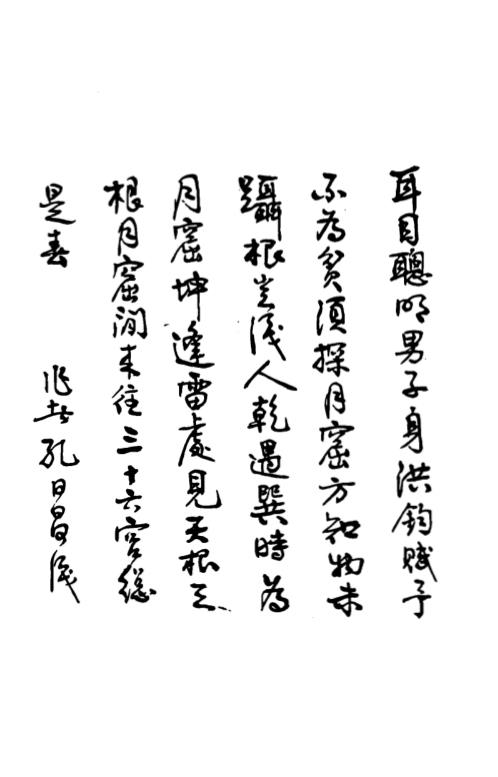 耳目聰明男子身洪鈞賦予
不為貧須探月窟方知物未
躡根豈識人乾遇巽時為
月窟坤逢雷處見天根天
根月窟間来往三十六宮總
是春 孔日昌識